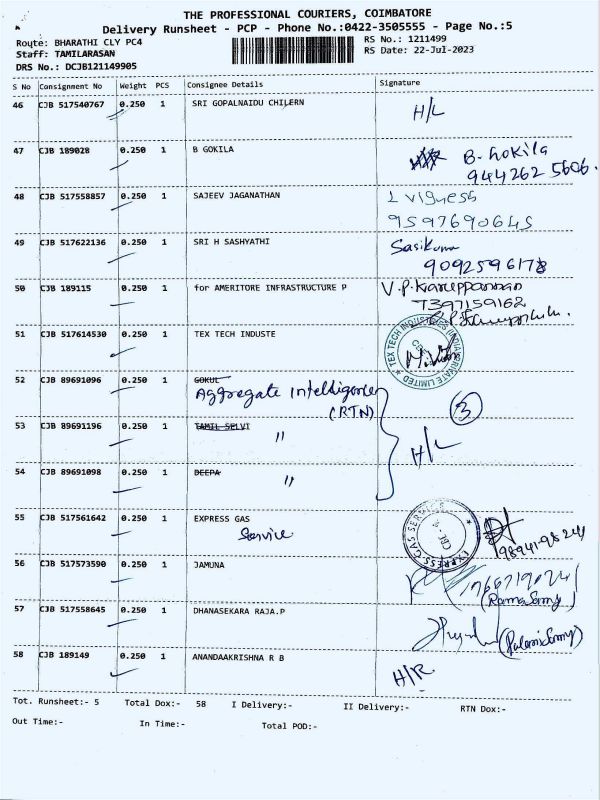 THE PROFESSIONAL COURIERS, COIMBATORE
Delivery Runsheet - PCP - Phone No.:0422-3505555 - Page No.:5
Route: BHARATHI CLY PC4 RS No.: 1211499
Staff: TAMILARASAN RS Date: 22-Jul-2023
DRS No.: DCJB121149905
S No Consignment No Weight PCS Consignee Details Signature
46 CJB 517540767 0.250 1 SRI GOPALNAIDU CHILERN H/L
47 CJB 189028 0.250 1 B GOKILA B. Gokila
944262 5606.
48 CJB 517558857 0.250 1 SAJEEV JAGANATHAN L Vigness
9597690645
49 CJB 517622136 0.250 1 SRI H SASHYATHI Sasikuma
9092596178
50 CJB 189115 0.250 1 for AMERITORE INFRASTRUCTURE P V.P.Karuppannan
7397159162
51 CJB 517614530 0.250 1 TEX TECH INDUSTE TEX TECH INDUSTRIES (INDIA) PRIVATE LIMITED
52 CJB 89691096 0.250 1 GOKUL
Aggregate Intelligence
(RTN) 3
53 CJB 89691196 0.250 1 TAMIL SELVI " H/L
54 CJB 89691098 0.250 1 DEEPA "
55 CJB 517561642 0.250 1 EXPRESS GAS EXPRESS GAS SERVICE
Service 98941-98241
56 CJB 517573590 0.250 1 JAMUNA
(RamaSamy)
57 CJB 517558645 0.250 1 DHANASEKARA RAJA.P (PalaniSamy)
58 CJB 189149 0.250 1 ANANDAAKRISHNA R B H/R.
Tot. Runsheet:- 5 Total Dox:- 58 I Delivery:- II Delivery:- RTN Dox:-
Out Time:- In Time:- Total POD:-